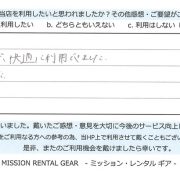 当店を利用したいと思われましたか？その他感想・ご要望がご
利用したい b. どちらともいえない c. 利用はしない (
快適に利用
いました。戴いたご感想・意見を大切に今後のサービス向上に
をご利用になる方への参考の為、当HP上で利用させて戴くこともござい
是非、またのご利用機会を戴けましたら幸いです。
MISSION RENTAL GEAR - ミッション・レンタル ギア -